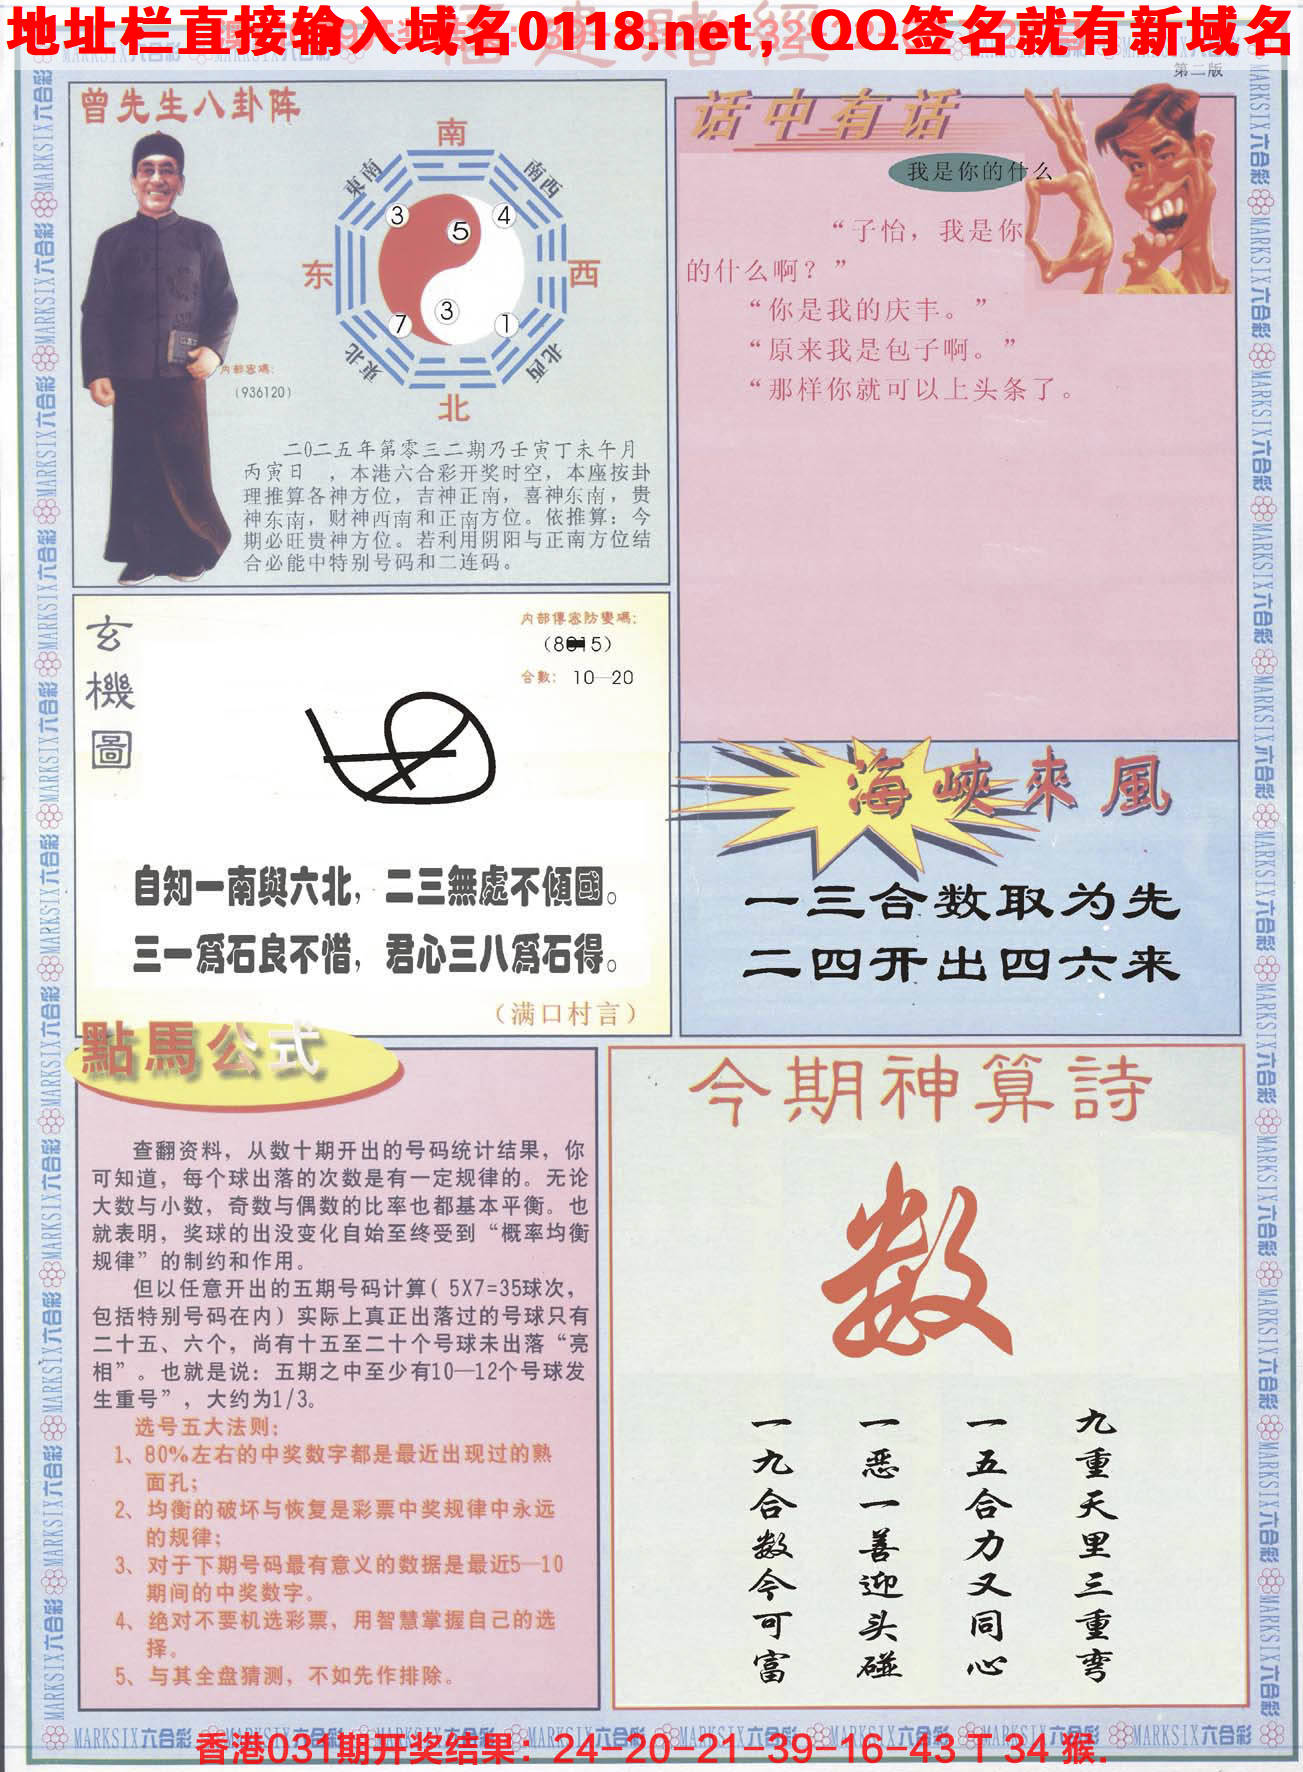 地址栏直接输入域名0118.net，QQ签名就有新域名
第二版
曾先生八卦阵
南
東南
南西
3
4
5
东
西
3
7
1
東北
北西
北
内部密碼：
（936120）
二0二五年第零三二期乃壬寅丁未午月
丙寅日　，本港六合彩开奖时空，本座按卦
理推算各神方位，吉神正南，喜神东南，贵
神东南，财神西南和正南方位。依推算：今
期必旺贵神方位。若利用阴阳与正南方位结
合必能中特别号码和二连码。
话中有话
我是你的什么
“子怡，我是你
的什么啊？”
“你是我的庆丰。”
“原来我是包子啊。”
“那样你就可以上头条了。
玄機圖
内部傳密防變碼：
合數： 10—20
自知一南與六北，二三無處不傾國。
三一爲石良不惜，君心三八爲石得。
（满口村言）
海峽來風
一三合数取为先
二四开出四六来
點馬公式
查翻资料，从数十期开出的号码统计结果，你
可知道，每个球出落的次数是有一定规律的。无论
大数与小数，奇数与偶数的比率也都基本平衡。也
就表明，奖球的出没变化自始至终受到“概率均衡
规律”的制约和作用。
但以任意开出的五期号码计算（5X7=35球次，
包括特别号码在内）实际上真正出落过的号球只有
二十五、六个，尚有十五至二十个号球未出落“亮
相”。也就是说：五期之中至少有10—12个号球发
生重号”，大约为1/3。
选号五大法则：
1、80%左右的中奖数字都是最近出现过的熟
面孔；
2、均衡的破坏与恢复是彩票中奖规律中永远
的规律；
3、对于下期号码最有意义的数据是最近5—10
期间的中奖数字。
4、绝对不要机选彩票，用智慧掌握自己的选
择。
5、与其全盘猜测，不如先作排除。
今期神算詩
数
九重天里三重弯
一五合力又同心
一恶一善迎头碰
一九合数今可富
MARKSIX六合彩
香港031期开奖结果：24-20-21-39-16-43 T 34 猴.